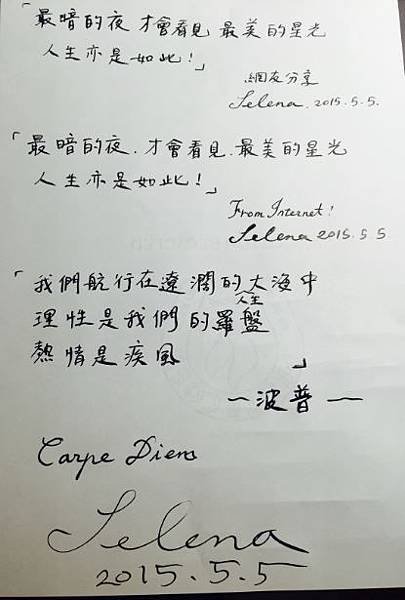 「最暗的夜 才會看見 最美的星光
人生亦是如此!」
網友分享
Selena. 2015.5.5.
「最暗的夜.才會看見.最美的星光
人生亦是如此!」
From Internet!
Selena 2015.5 5.
「我們航行在遼濶的大海中
人生
理性是我們的羅盤
熱情是疾風
」
～波普～
Carpe Diem
Selena
2015.5.5